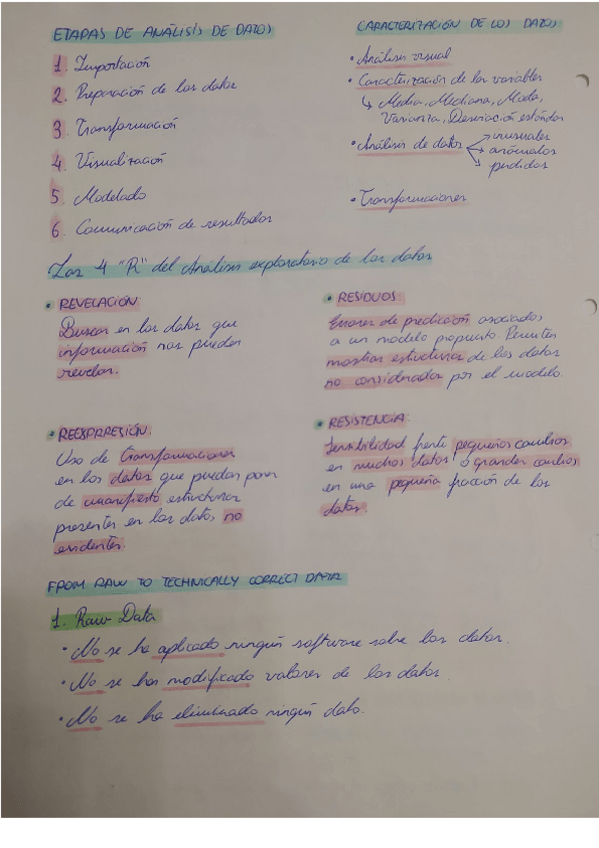 ETAPAS DE ANÁLISIS DE DATOS
1. Importación
2. Preparación de los datos
3. Transformación
4. Visualización
5. Modelado
6. Comunicación de resultados
CARACTERIZACIÓN DE LOS DATOS
• Análisis visual
• Caracterización de las variables
↳ Media, Mediana, Moda,
Varianza, Desviación estándar
• Análisis de datos → inusuales
→ anómalos
→ perdidos
• Transformaciones
Las 4 "R" del Análisis exploratorio de los datos
• REVELACIÓN:
Buscar en los datos que
información nos pueden
revelar.
• RESIDUOS:
Errores de predicción asociados
a un modelo propuesto. Permiten
mostrar estructuras de los datos
no consideradas por el modelo.
• REEXPRRESIÓN:
Uso de transformaciones
en los datos que puedan poner
de manifiesto estructuras
presentes en los datos no
evidentes.
• RESISTENCIA:
Sensibilidad frente pequeños cambios
en muchos datos o grandes cambios
en una pequeña fracción de los
datos.
FROM RAW TO TECHNICALLY CORRECT DATA
1. Raw Data
• No se ha aplicado ningún software sobre los datos.
• No se han modificado valores de los datos.
• No se ha eliminado ningún dato.